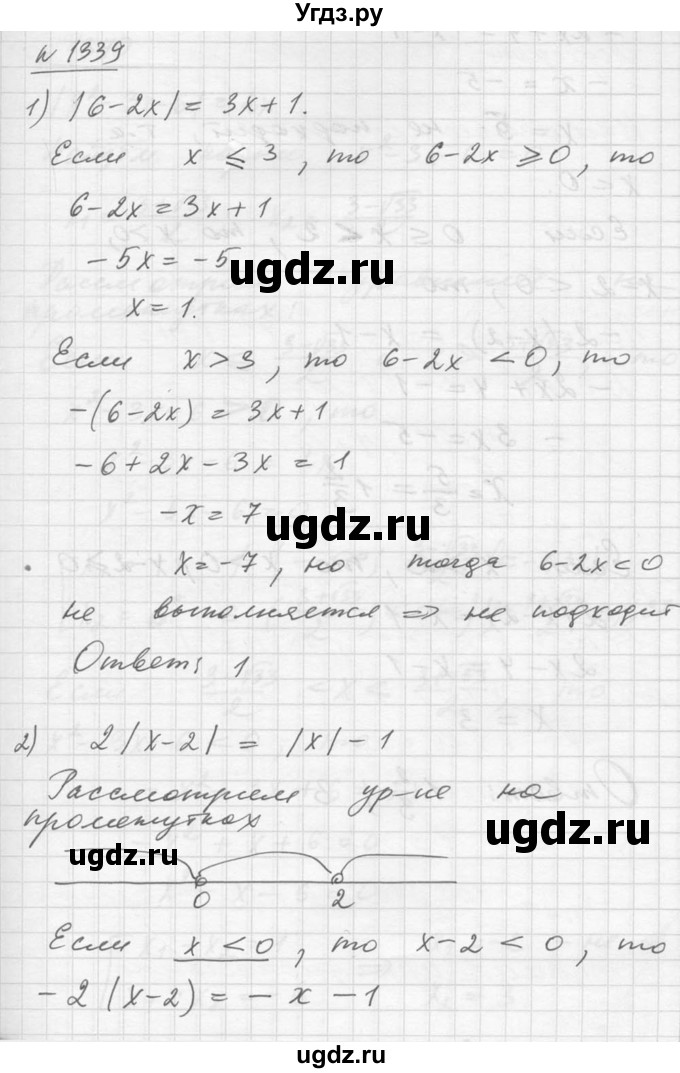 Угдз.ру
№ 1339
1) |6-2x| = 3x+1.
Если x ⩽ 3, то 6-2x ⩾ 0, то
6-2x = 3x+1
-5x = -5
ugdz.ru
x = 1.
Если x > 3, то 6-2x < 0, то
-(6-2x) = 3x+1
-6+2x-3x = 1
-x = 7
ugdz.ru
x = -7, но тогда 6-2x<0
не выполняется => не подходит
Ответ: 1
2) 2|x-2| = |x|-1
Рассмотрим ур-ие на
промежутках
ugdz.ru
ugdz.ru
0 2
Если x < 0, то x-2 < 0, то
-2(x-2) = -x-1
ugdz.ru